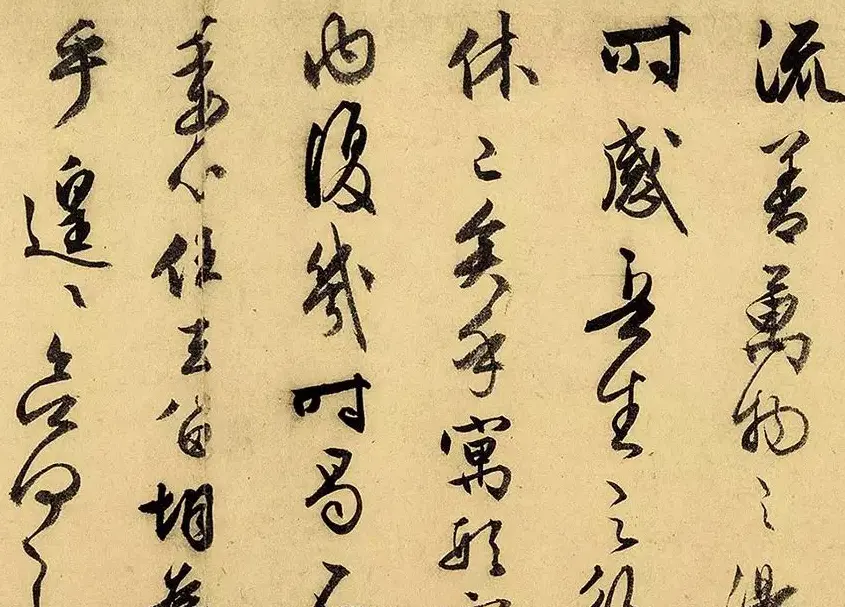 流善萬物之得
時感吾生之行
休已矣乎寓形
内復幾時曷不
委心任去留胡為
乎遑々欲何之